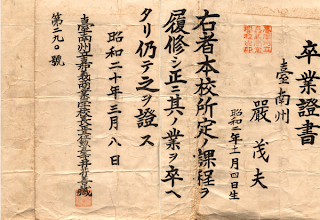 卒業證書
臺南州
嚴茂夫
昭和二年十一月四日生
右者本校所定ノ課程ヲ
履修シ正ニ其ノ業ヲ卒ヘ
タリ仍テ之ヲ證ス
昭和二十年三月八日
臺南州立嘉義商業學校長正五位勳六等
第二九〇號